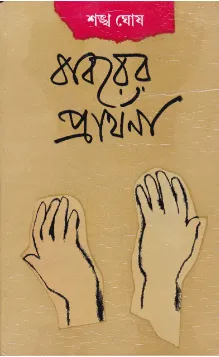 শঙ্খ ঘোষ
বাবরের
প্রার্থনা